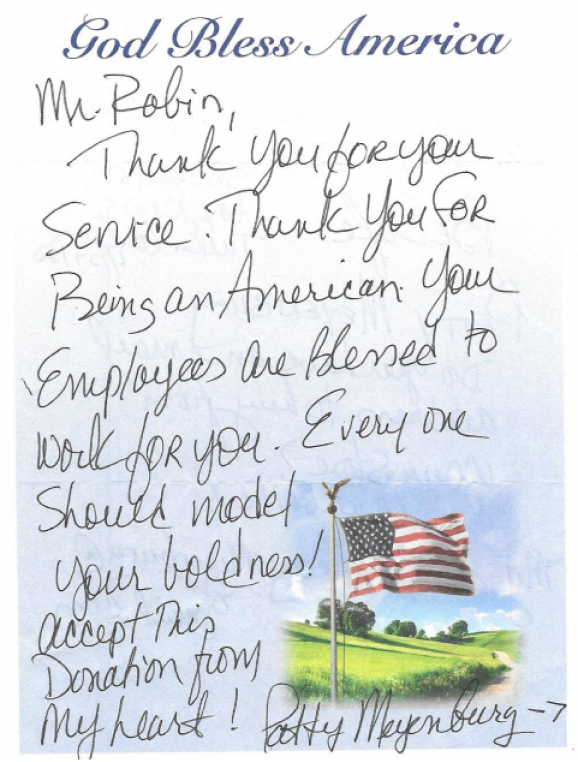 God Bless America
Mr. Robin,
Thank you for your
Service. Thank you For
Being an American. Your
Employees are Blessed to
work for you. Every one
Should model
your boldness!
accept This
Donation from
My heart! Patty Meyenburg →